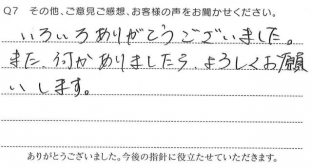 Q7 その他、ご意見ご感想、お客様の声をお聞かせください。
いろいろありがとうございました。
また、何かありましたら、よろしくお願
いします。
ありがとうございました。今後の指針に役立たせていただきます。